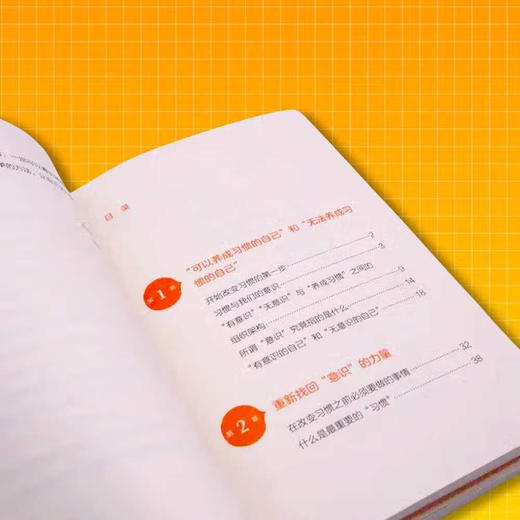 目 录
第1章
“可以养成习惯的自己”和“无法养成习
惯的自己”
开始改变习惯的第一步 2
习惯与我们的意识 3
“有意识”“无意识”与“养成习惯”之间的
组织架构 9
所谓“意识”究竟指的是什么 14
“有意识的自己”和“无意识的自己” 18
第2章
重新找回“意识”的力量
在改变习惯之前必须要做的事情 32
什么是最重要的“习惯” 38